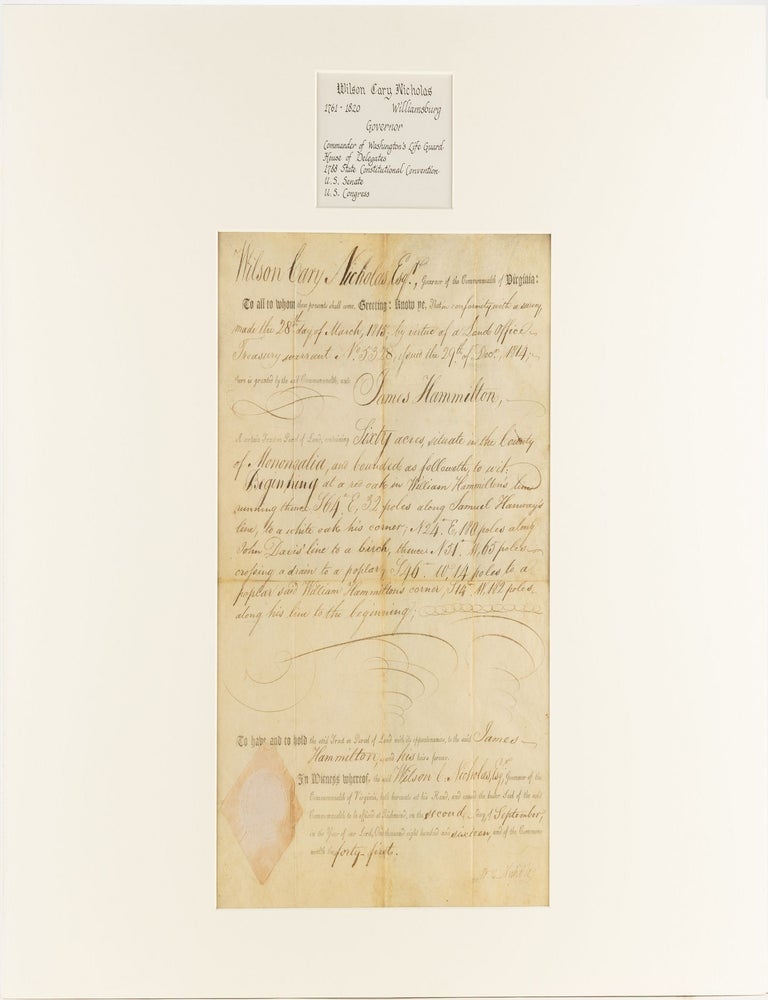 Wilson Cary Nicholas
1761 - 1820 Williamsburg
Governor
Commander of Washington's Life Guard
House of Delegates
1788 State Constitutional Convention
U. S. Senate
U. S. Congress
Wilson Cary Nicholas Esqr., Governor of the Commonwealth of Virginia:
To all to whom these presents shall come, Greeting: Know ye, That in conformity with a survey
made the 28th day of March, 1815, by virtue of a Land Office
Treasury warrant No. 5328, issued the 29th of Decr., 1814,
there is granted by the said Commonwealth, unto
James Hammilton,
A certain Tract or Parcel of Land, containing Sixty acres, situate in the County
of Monongalia, and bounded as followeth, to wit:
Beginning at a red oak in William Hammilton's line
running thence S64°. E, 32 poles along Samuel Hanway's
line, to a white oak his corner, N24°. E, 180 poles along
John Davis' line to a birch, thence N31°. W, 65 poles
crossing a drain to a poplar, S46°. W, 14 poles to a
poplar said William Hammilton's corner, S14°. W, 182 poles
along his line to the beginning;
To have and to hold the said Tract or Parcel of Land with its appurtenances, to the said James
Hammilton, and his heirs forever.
In Witness whereof, the said Wilson C. Nicholas, Esqr., Governor of the
Commonwealth of Virginia, hath hereunto set his Hand, and caused the lesser Seal of the said
Commonwealth to be affixed at Richmond, on the second day of September,
in the Year of our Lord, One thousand eight hundred and sixteen, and of the Common-
wealth the forty-first.
W. C. Nicholas